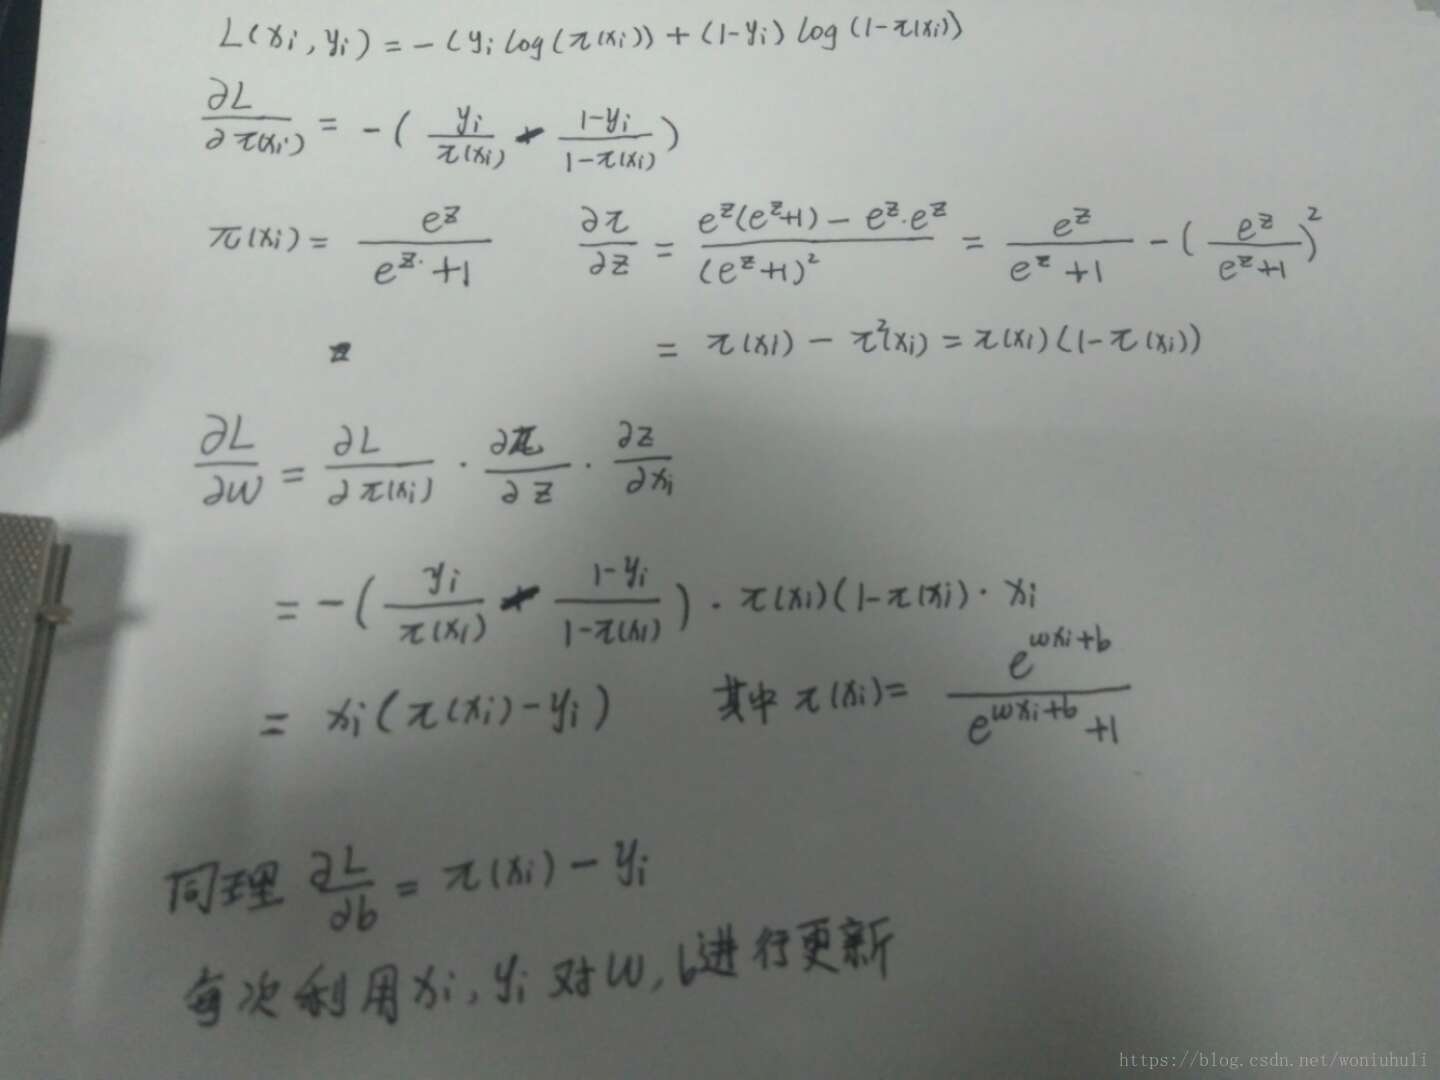 L(xi, yi) = -(yi log(π(xi)) + (1-yi) log(1-π(xi))
∂L/∂π(xi) = -(yi/π(xi) - (1-yi)/(1-π(xi)))
π(xi) = e^z/(e^z+1) ∂π/∂z = (e^z(e^z+1) - e^z·e^z)/(e^z+1)² = e^z/(e^z+1) - (e^z/(e^z+1))²
= π(xi) - π²(xi) = π(xi)(1-π(xi))
∂L/∂w = ∂L/∂π(xi) · ∂π/∂z · ∂z/∂xi
= -(yi/π(xi) - (1-yi)/(1-π(xi))) · π(xi)(1-π(xi) · xi
= xi(π(xi)-yi) 其中 π(xi) = e^(wxi+b)/(e^(wxi+b)+1)
同理 ∂L/∂b = π(xi) - yi
每次利用xi, yi 对w, b进行更新
https://blog.csdn.net/woniuhuli